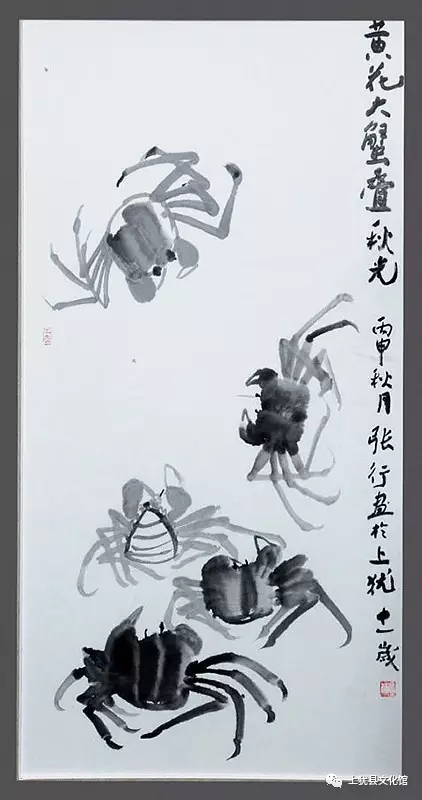 黄花大蟹叠秋光 丙申秋月张行画於上犹 十一歲
上犹县文化馆